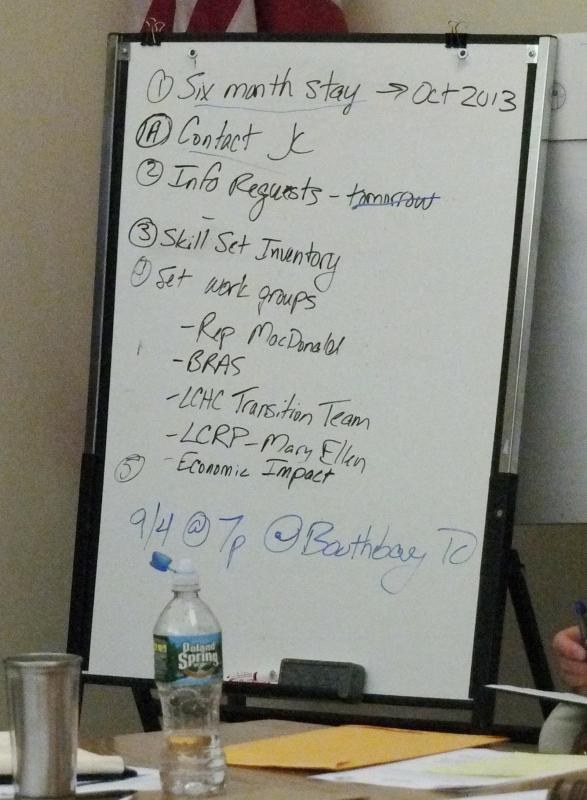 ① Six month stay → Oct 2013
1A Contact JC
② Info Requests - tomorrow
③ Skill Set Inventory
④ Set work groups
- Rep MacDonald
- BRAS
- LCHC Transition Team
- LCRP - Mary Ellen
⑤ - Economic Impact
9/4 @ 7p @ Boothbay TO
Poland
Spring